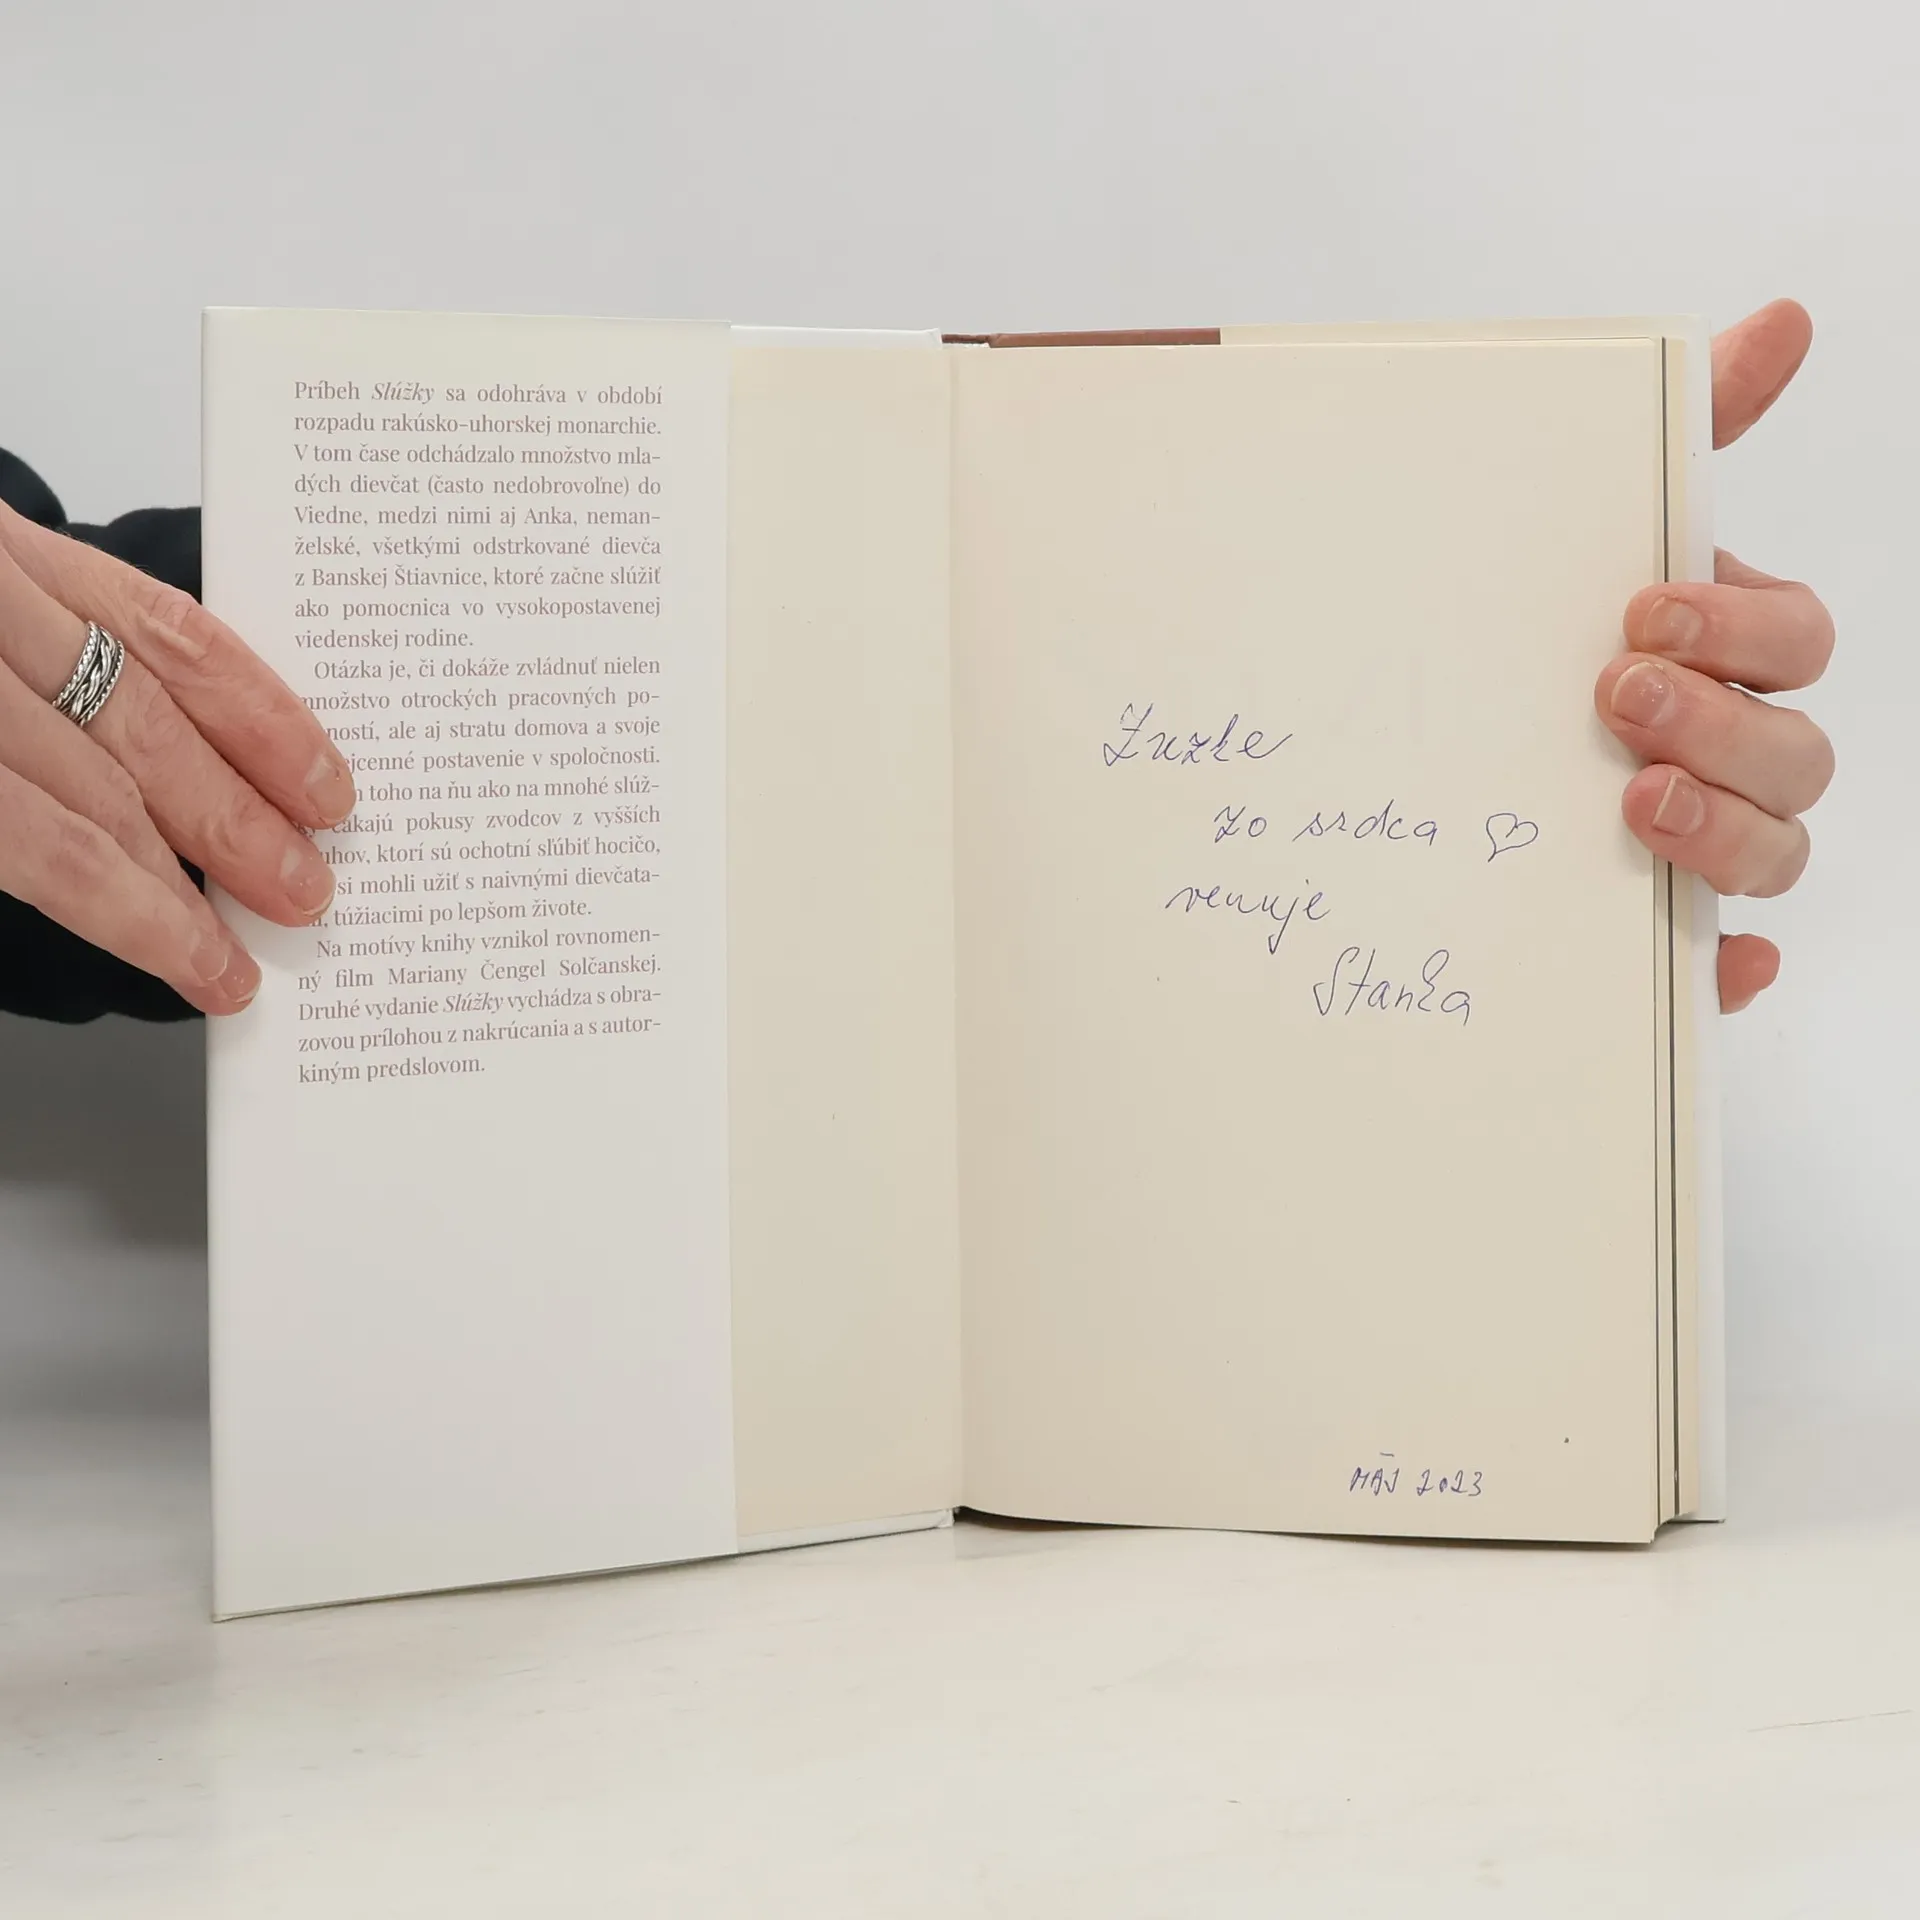 Príbeh Slúžky sa odohráva v období
rozpadu rakúsko-uhorskej monarchie.
V tom čase odchádzalo množstvo mla-
dých dievčat (často nedobrovoľne) do
Viedne, medzi nimi aj Anka, neman-
želské, všetkými odstrkované dievča
z Banskej Štiavnice, ktoré začne slúžiť
ako pomocnica vo vysokopostavenej
viedenskej rodine.
Otázka je, či dokáže zvládnuť nielen
množstvo otrockých pracovných po-
ností, ale aj stratu domova a svoje
jcenné postavenie v spoločnosti.
toho na ňu ako na mnohé slúž-
ky čakajú pokusy zvodcov z vyšších
uhov, ktorí sú ochotní sľúbiť hocičo,
si mohli užiť s naivnými dievčata-
, túžiacimi po lepšom živote.
Na motívy knihy vznikol rovnomen-
ný film Mariany Čengel Solčanskej.
Druhé vydanie Slúžky vychádza s obra-
zovou prílohou z nakrúcania a s autor-
kiným predslovom.
Zuzke
zo srdca ♡
venuje
Stanka
MÁJ 2023